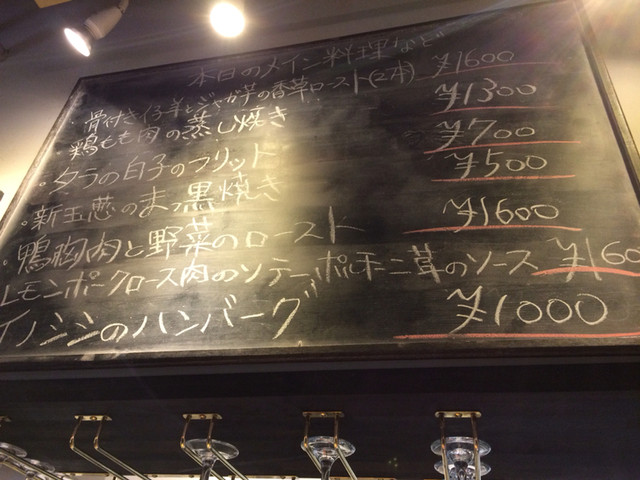 本日のメイン料理など
・骨付き仔羊とじゃが芋の香草ロースト(2本) ¥1600
鶏もも肉の蒸し焼き ¥1300
・タラの白子のフリット ¥700
・新玉葱のまっ黒焼き ¥500
・鴨胸肉と野菜のロースト ¥1600
レモンポークロース肉のソテーポルチーニ茸のソース ¥160
イノシシのハンバーグ ¥1000